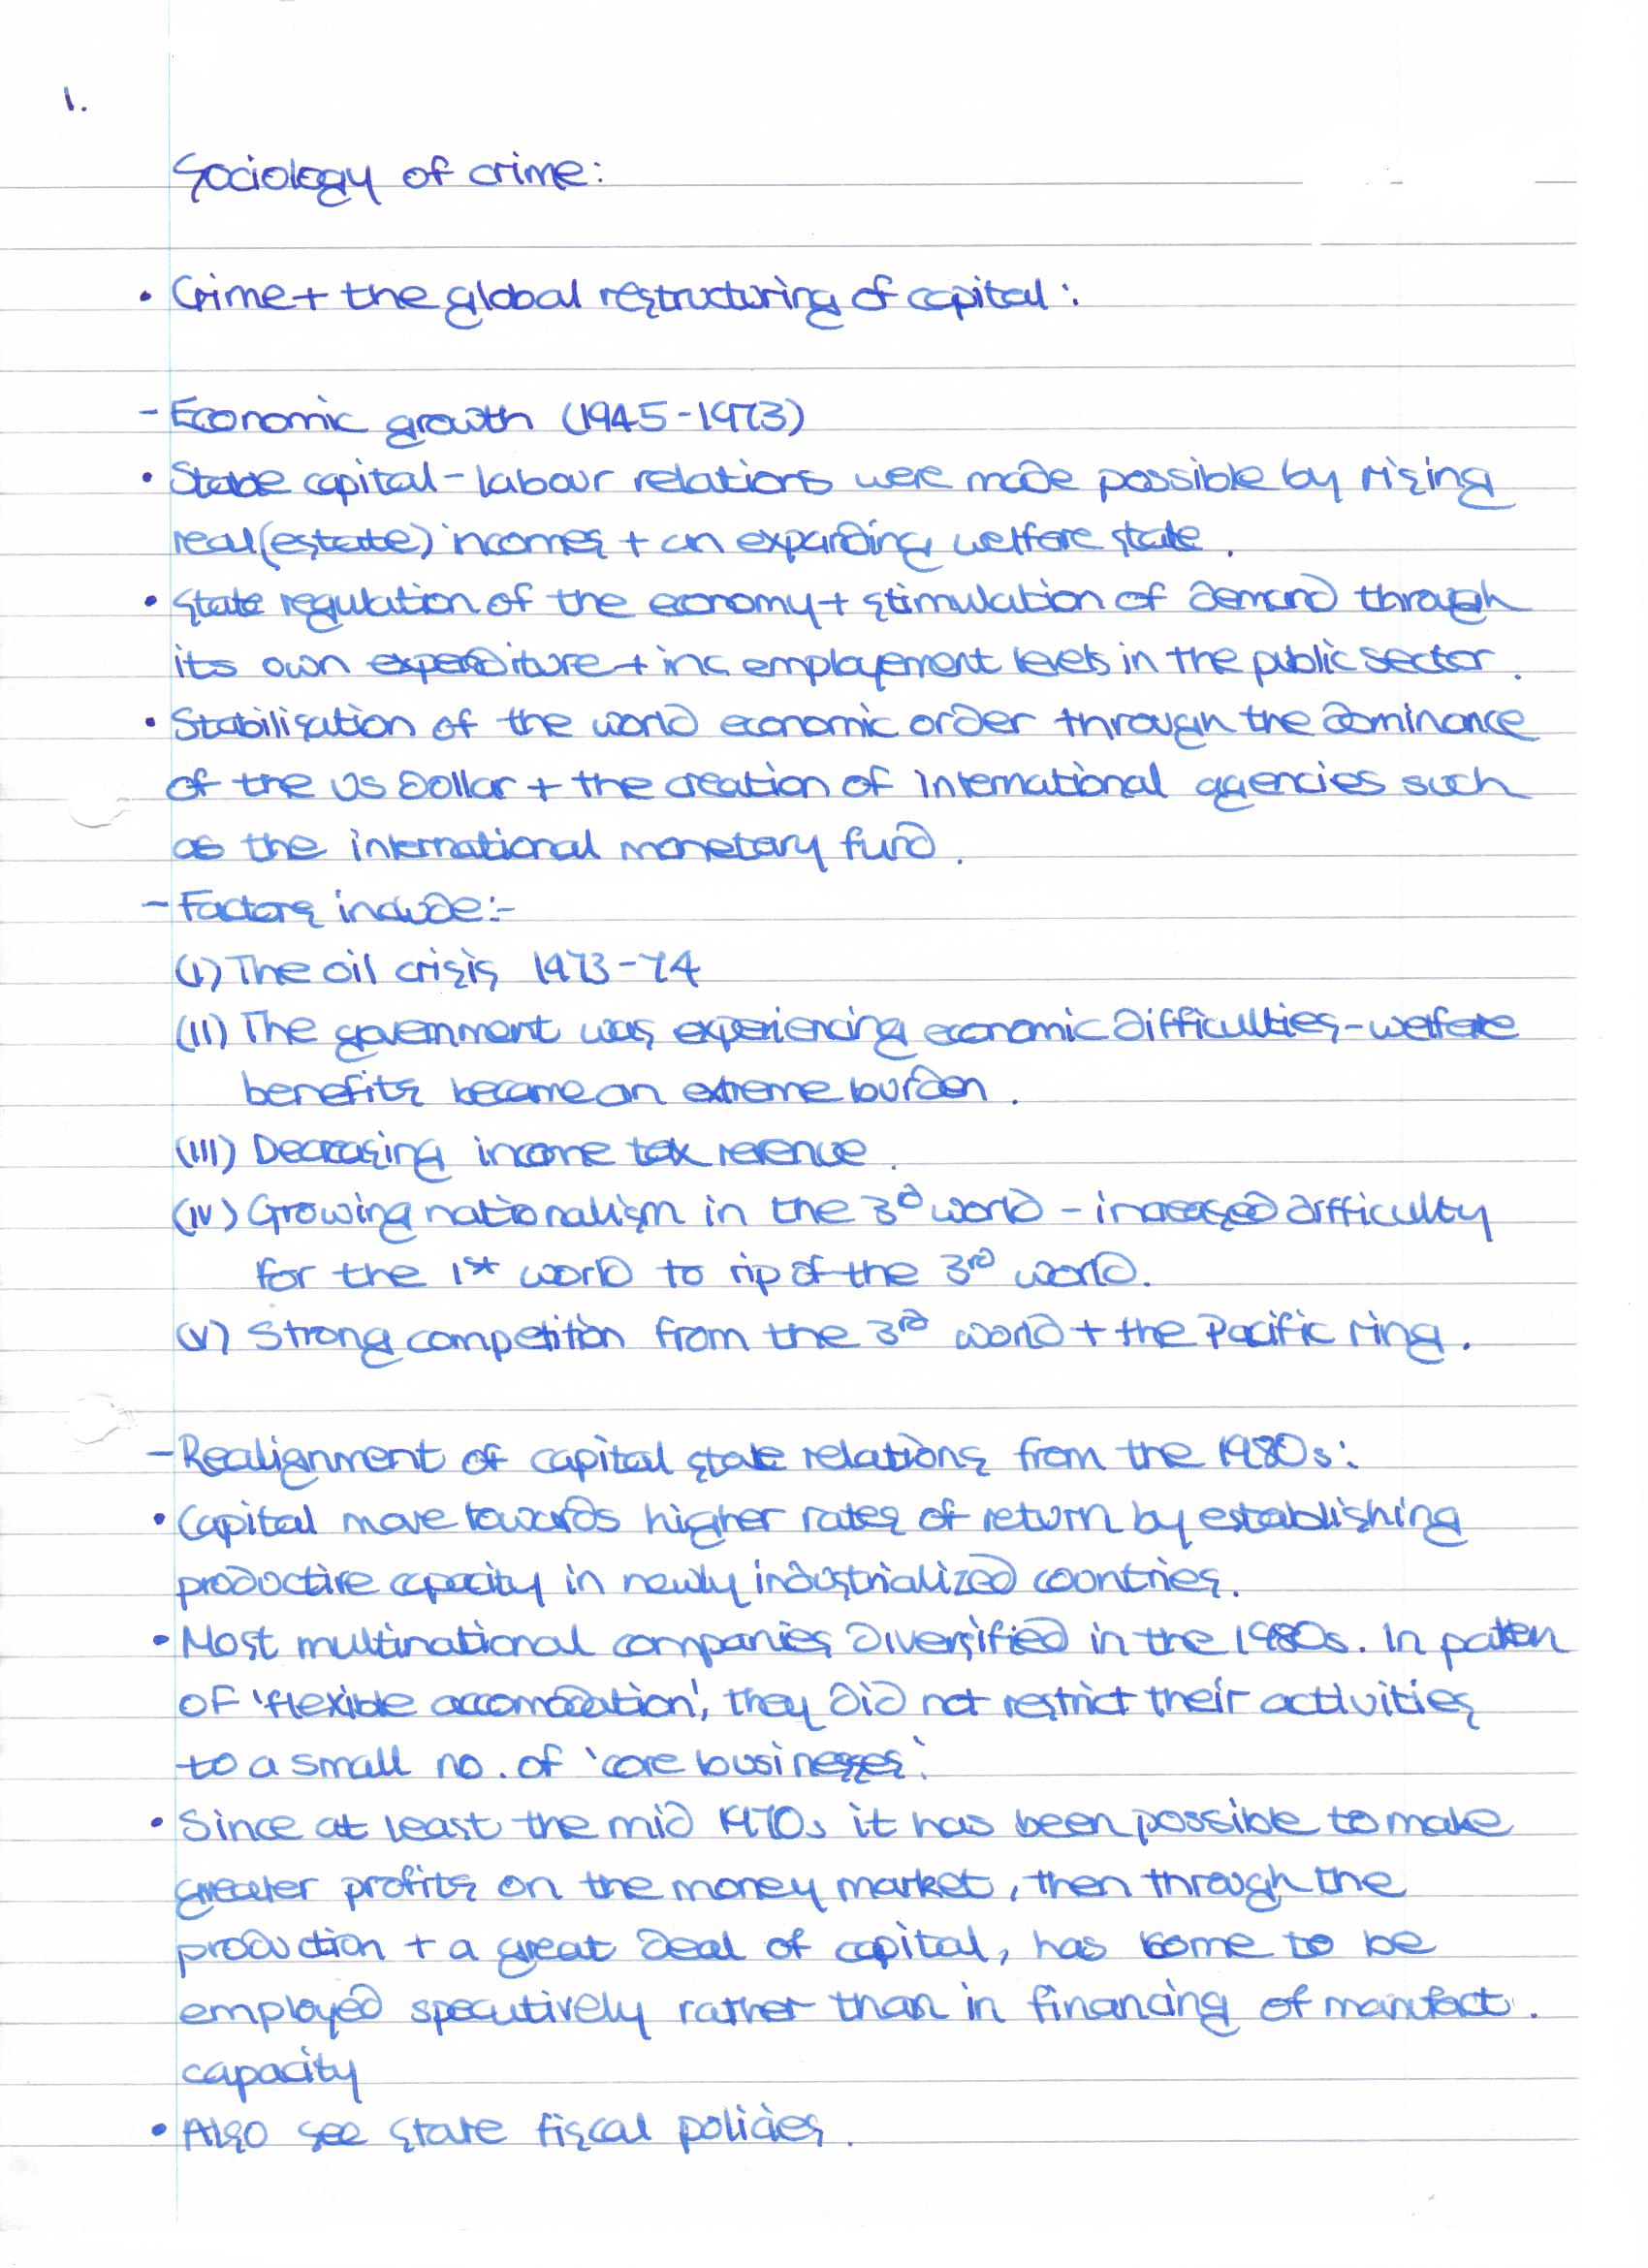 1.
Sociology of crime:
• Crime + the global restructuring of capital:
- Economic growth (1945-1973)
• Stable capital-labour relations were made possible by rising
real(estate) incomes + an expanding welfare state.
• State regulation of the economy + stimulation of demand through
its own expenditure + inc employement levels in the public sector.
• Stabilisation of the world economic order through the dominance
of the US Dollar + the creation of International agencies such
as the international monetary fund.
- Factors include:-
(I) The oil crisis 1973-74
(II) The government was experiencing economic difficulties-welfare
benefits became an extreme burden.
(III) Decreasing income tax revenue.
(IV) Growing nationalism in the 3d world - increased difficulty
for the 1st world to rip of the 3rd world.
(V) Strong competition from the 3rd world + the Pacific ring.
- Realignment of capital state relations from the 1980s:
• Capital move towards higher rates of return by establishing
productive capacity in newly industrialized countries.
• Most multinational companies diversified in the 1980s. In patten
of 'flexible accomodation', they did not restrict their activities
to a small no. of 'core businesses'.
• Since at least the mid 1970s it has been possible to make
greater profits on the money market, then through the
production + a great deal of capital, has come to be
employed specutively rather than in financing of manufact.
capacity
• Also see state fiscal policies.